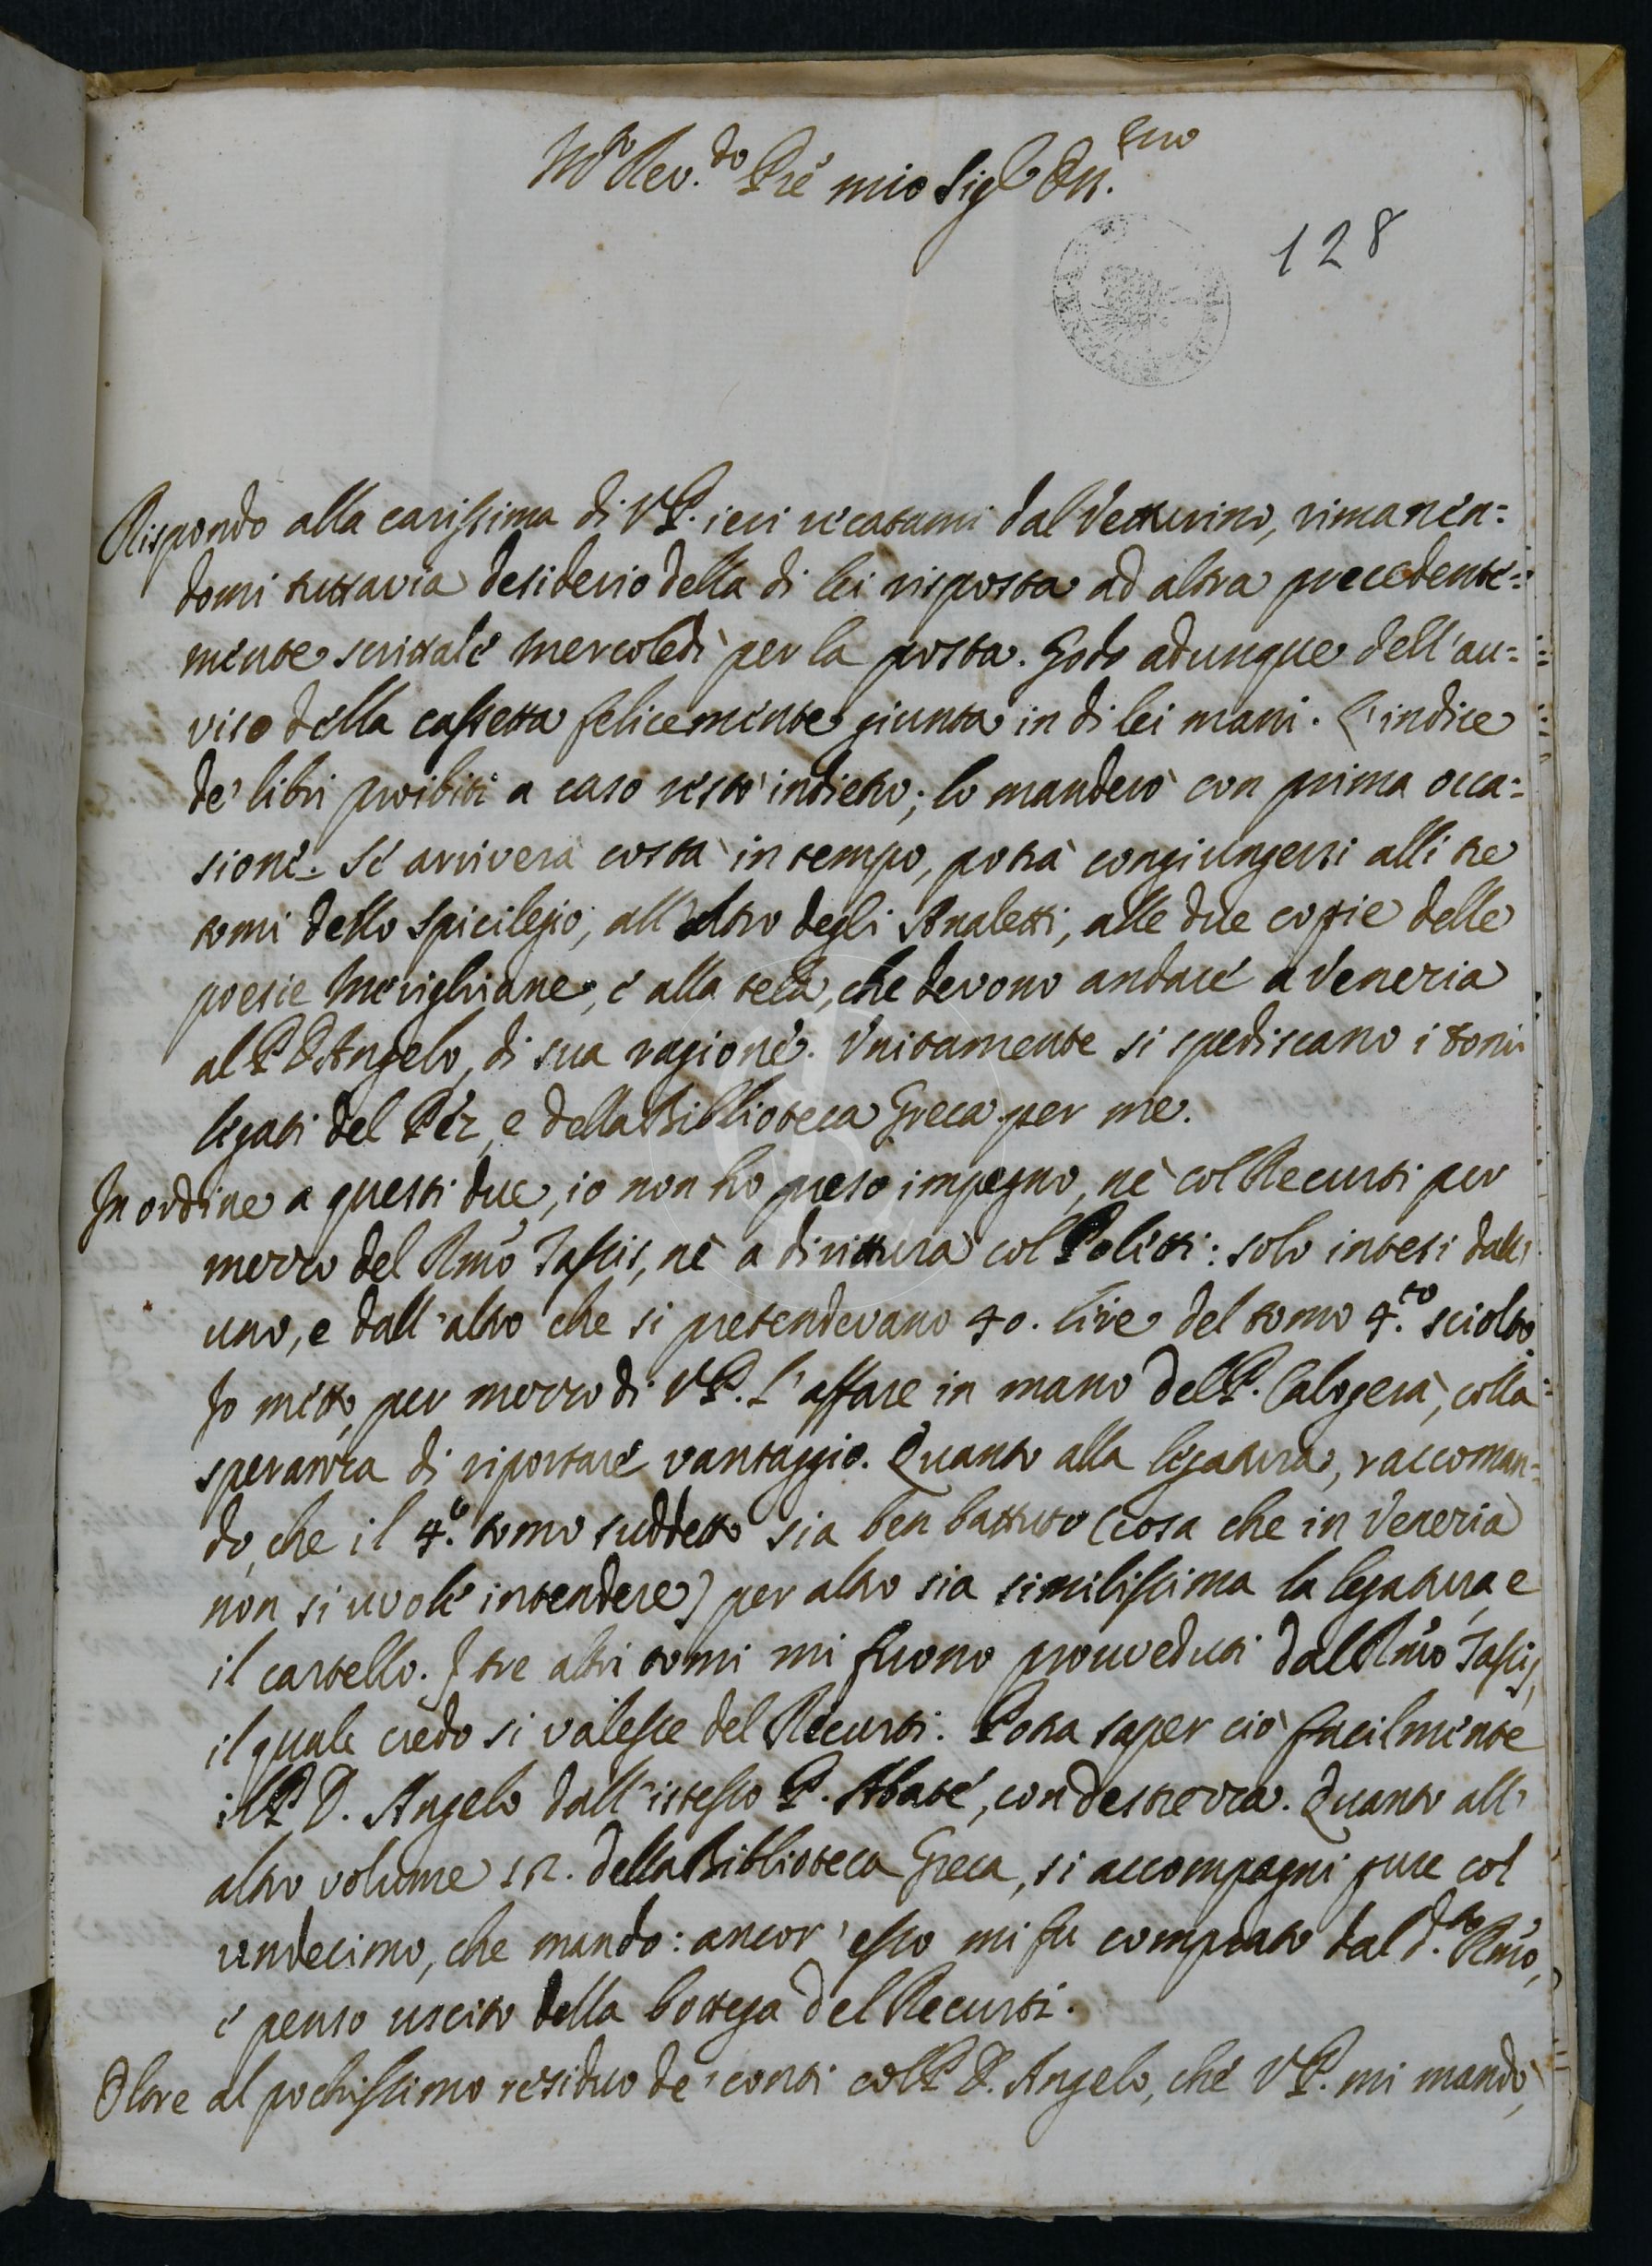 M.to Rev.do Pre mio Sig.r Oss.mo
128
Rispondo alla carissima di V P. ieri recatami dal Vetturino, rimanen=
domi tuttavia desiderio della di lei risposta ad altra precedente=
mente scrittale mercoledì per la posta. Godo adunque dell'au=
viso della cassetta felicemente giunta in di lei mani. L'indice
de' libri proibiti a caso restò indietro; lo manderò con prima occa=
sione. Se arriverà costà in tempo, potrà congiungersi alli tre
tomi dello Spicilegio, all'altro degli Analetti, alle due copie delle
poesie Merighiane, e alla tela, che devono andare a Venezia
al P. D. Angelo, di sua ragione. Unitamente si spediscano i tomi
legati del Pez, e della Biblioteca Greca per me.
In ordine a questi due, io non ho preso impegno, nè col Recurti per
mezzo del Rmo Tassis, nè a dirittura col Poletti: solo intesi dall'
uno, e dall'altro che si pretendevano 40. lire del tomo 4.to sciolto.
Io metto per mezzo di V P. l'affare in mano del P. Calogerà, colla
speranza di riportare vantaggio. Quanto alla legatura, raccoman=
do, che il 4.o tomo suddetto sia ben battuto (cosa che in Venezia
non si uvole intendere) per altro sia similissima la legatura, e
il cartello. I tre altri tomi mi furono provveduti dal Rmo Tassis,
il quale credo si valesse del Recurti. Potrà saper ciò facilmente
il P. D. Angelo dall'istesso P. Abate, con destrezza. Quanto all'
altro volume 12. della Biblioteca Greca, si accompagni pure col
undecimo, che mando: ancor'esso mi fu comprato dal d.to Rmo,
e penso uscito della bottega del Recurti.
Oltre al pochissimo residuo de' conti col P. D. Angelo, che V P. mi mandò,